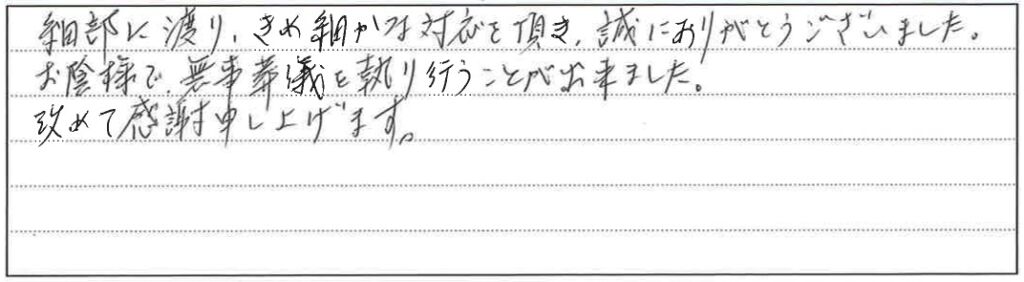 細部に渡り、きめ細かな対応を頂き、誠にありがとうございました。
お陰様で、無事葬儀を執り行うことが出来ました。
改めて感謝申し上げます。